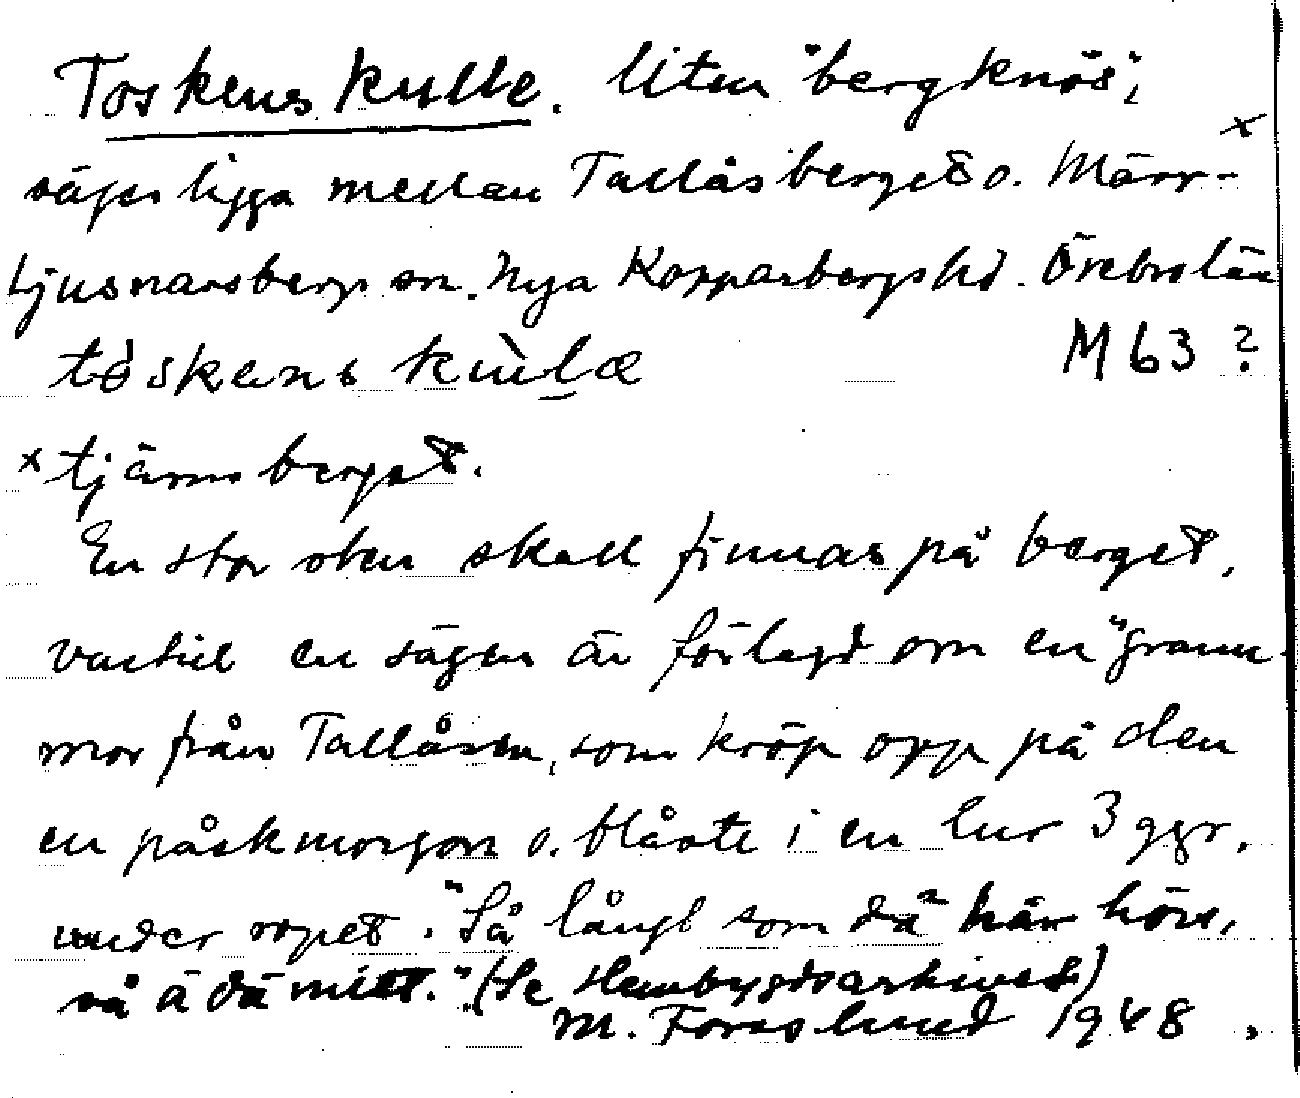 Toskens kulle. liten "bergknös",
säges ligga mellan Tallåsberget o. Märr- x
Ljusnarsberg sn. Nya Kopparbergs hd. Örebro län
M 63 ?
x tjärnsberget.
En stor sten skall finnas på berget,
vartill en sägen är förlagd om en "gramm-
mor från Tallåsen, som kröp opp på den
en påskmorgon o. blåste i en lur 3 ggr,
under ropet: "Så långt som dä här hörs,
så ä dä mitt." (Se Hembygdsarkivet)
M. Forslund 1948